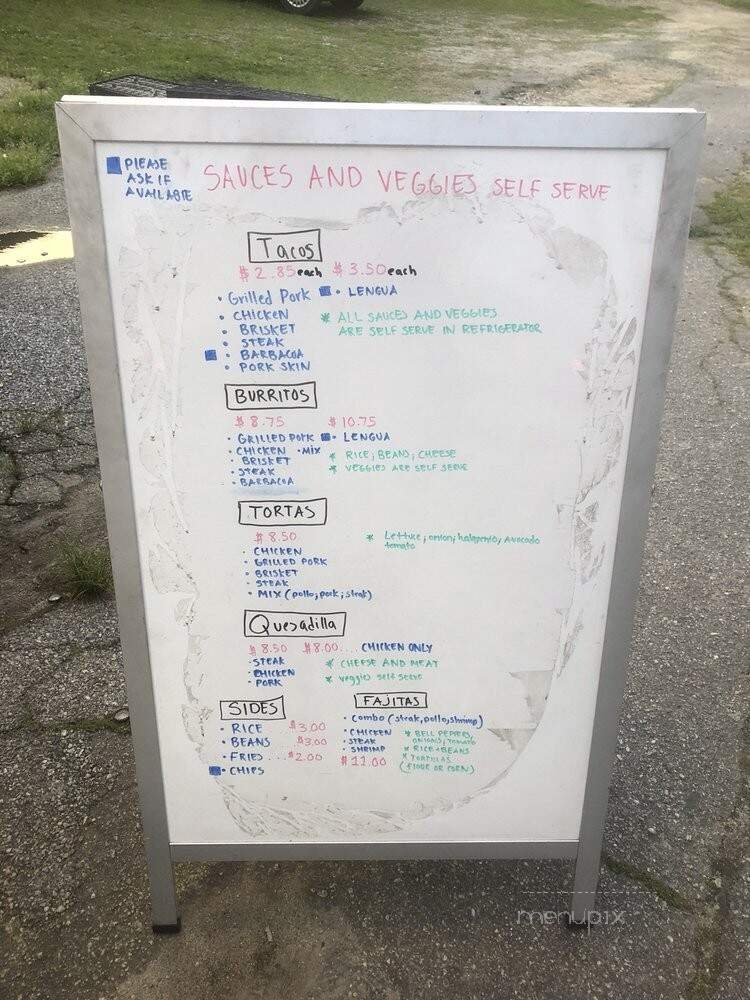 ■ PLEASE
ASK IF
AVAILABLE
SAUCES AND VEGGIES SELF SERVE
Tacos
$2.85 each $3.50 each
• Grilled Pork ■ • LENGUA
• CHICKEN
• BRISKET
• STEAK
■ • BARBACOA
• PORK SKIN
* ALL SAUCES AND VEGGIES
ARE SELF SERVE IN REFRIGERATOR
BURRITOS
$8.75 $10.75
• GRILLED PORK ■ • LENGUA
• CHICKEN • MIX
• BRISKET
• STEAK
• BARBACOA
* RICE, BEANS, CHEESE
* VEGGIES ARE SELF SERVE
TORTAS
$8.50
• CHICKEN
• GRILLED PORK
• BRISKET
• STEAK
• MIX (pollo, pork, steak)
* Lettuce, onion, halapenio, Avocado
tomato
Quesadilla
$8.50 $8.00.... CHICKEN ONLY
• STEAK
• CHICKEN
• PORK
* CHEESE AND MEAT
* veggies self serve
SIDES
• RICE $3.00
• BEANS $3.00
• FRIES ... $2.00
■ • CHIPS
FAJITAS
• Combo (steak, pollo, shrimp)
• CHICKEN
• STEAK
• SHRIMP
$11.00
* BELL PEPPERS,
ONIONS, TOMATO
* RICE + BEANS
* TORTILLAS
(FLOUR OR CORN)
menupix